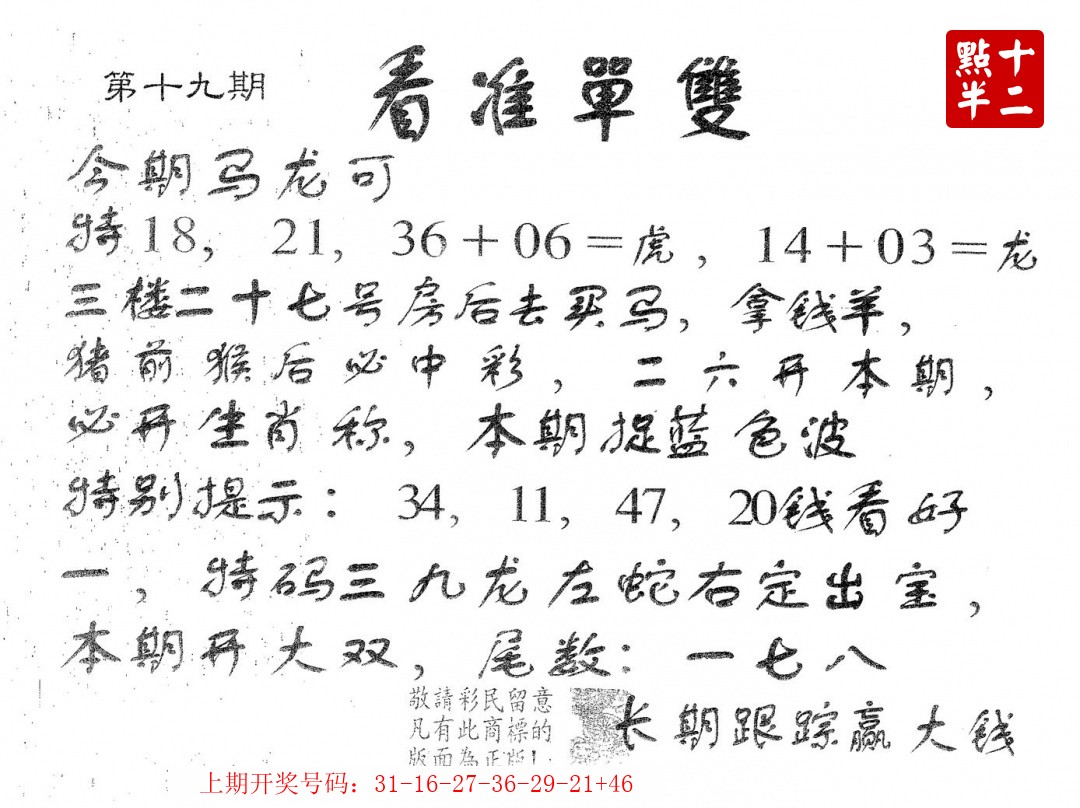 第十九期 看准單雙
十二點半
今期马龙可
特18, 21, 36+06=虎, 14+03=龙
三楼二十七号房后去买马, 拿钱羊,
猪前猴后必中彩, 二六开本期,
必开生肖称, 本期捉蓝色波
特别提示: 34, 11, 47, 20钱看好
一, 特码三九龙左蛇右定出宝,
本期开大双, 尾数: 一七八
敬請彩民留意
凡有此商標的
版面為正版!
长期跟踪赢大钱
上期开奖号码: 31-16-27-36-29-21+46